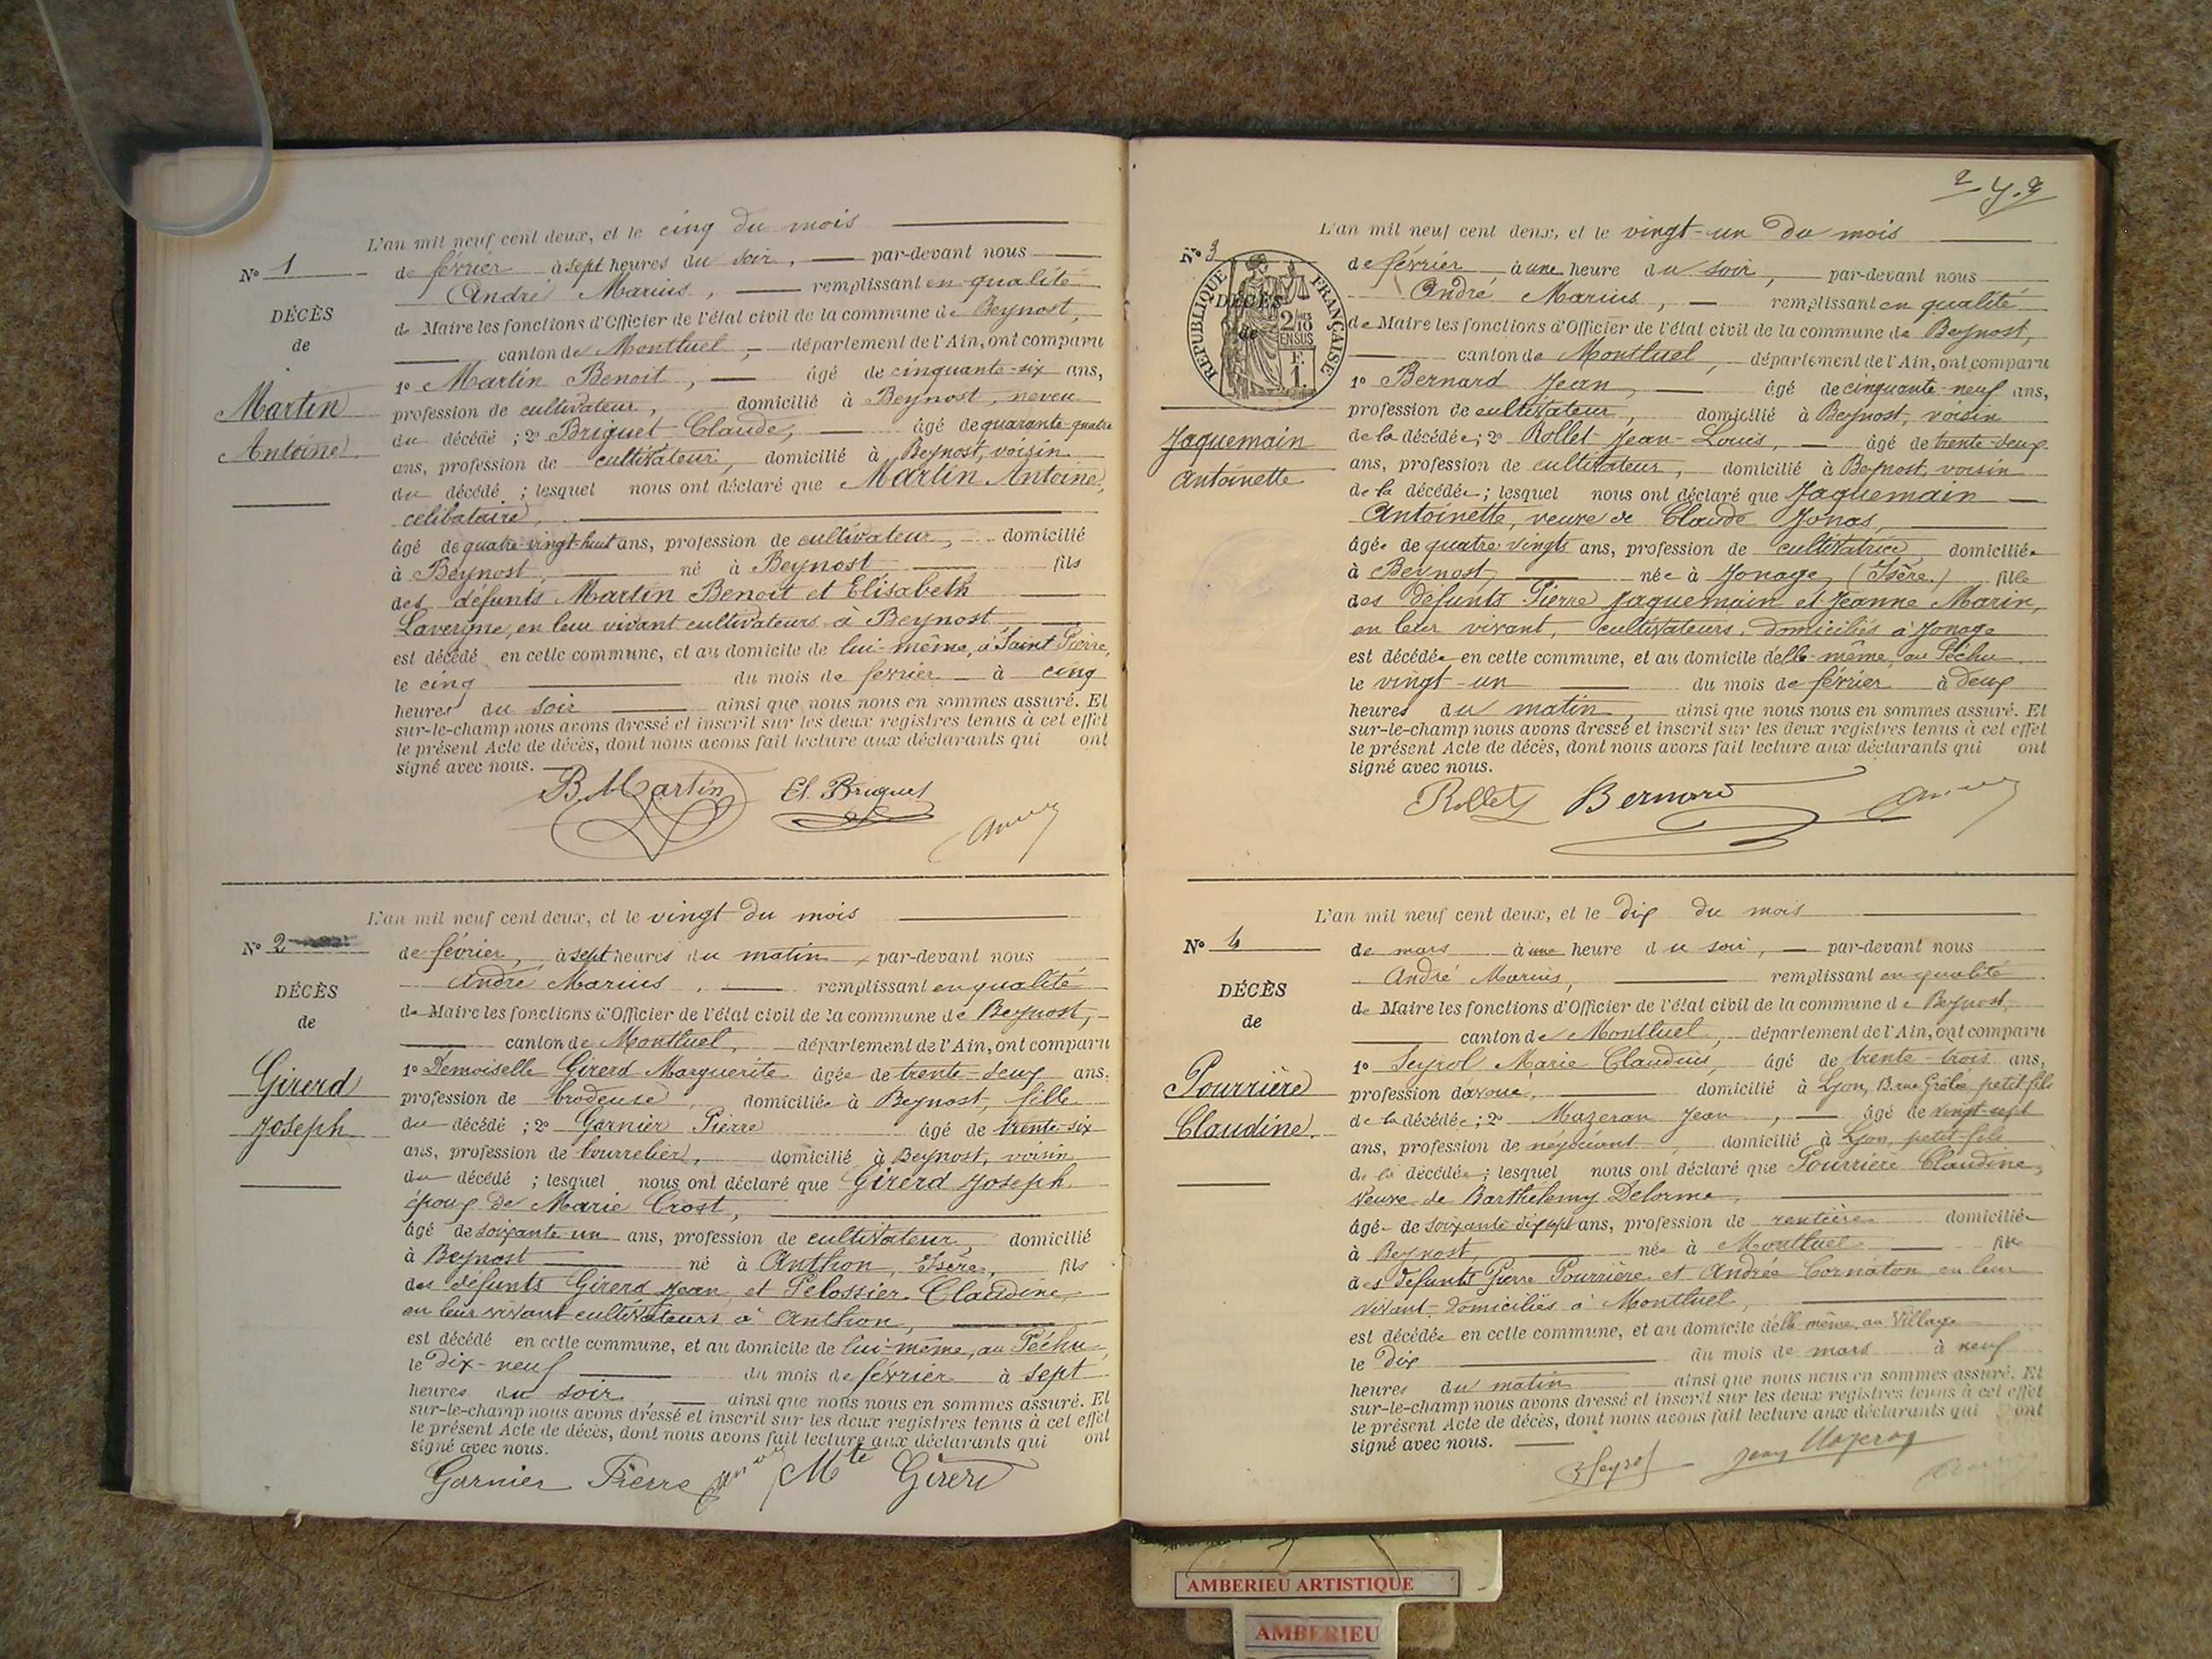 L'an mil neuf cent deux, et le cinq du mois
N° 1
de février à sept heures du soir, par-devant nous
André Marius, remplissant en qualité
DÉCÈS
de Maire les fonctions d'Officier de l'état civil de la commune de Beynost,
de
canton de Montluel, département de l'Ain, ont comparu
1° Martin Benoit, âgé de cinquante-six ans,
Martin
profession de cultivateur, domicilié à Beynost, neveu
du décédé ; 2° Briguet Claude, âgé de quarante-quatre
Antoine.
ans, profession de cultivateur, domicilié à Beynost, voisin
du décédé ; lesquel nous ont déclaré que Martin Antoine,
célibataire,
âgé de quatre-vingt-huit ans, profession de cultivateur, domicilié
à Beynost, né à Beynost fils
des défunts Martin Benoit et Elisabeth
Lavergne, en leur vivant cultivateurs à Beynost
est décédé en cette commune, et au domicile de lui-même, à Saint Pierre,
le cinq du mois de février à cinq
heures du soir ainsi que nous nous en sommes assuré. Et
sur-le-champ nous avons dressé et inscrit sur les deux registres tenus à cet effet
le présent Acte de décès, dont nous avons fait lecture aux déclarants qui ont
signé avec nous.
B. Martin Cl. Briguet
L'an mil neuf cent deux, et le vingt du mois
N° 2
de février, à sept heures du matin, par-devant nous
André Marius, remplissant en qualité
DÉCÈS
de Maire les fonctions d'Officier de l'état civil de la commune de Beynost,
de
canton de Montluel, département de l'Ain, ont comparu
1° Demoiselle Girerd Marguerite âgée de trente-deux ans,
Girerd
profession de brodeuse, domiciliée à Beynost, fille
Joseph
du décédé ; 2° Garnier Pierre âgé de trente-six
ans, profession de bourrelier, domicilié à Beynost, voisin
du décédé ; lesquel nous ont déclaré que Girerd Joseph
époux de Marie Crost,
âgé de soixante-un ans, profession de cultivateur, domicilié
à Beynost né à Anthon, Isère, fils
des défunts Girerd Jean et Pelossier Claudine,
en leur vivant cultivateurs à Anthon,
est décédé en cette commune, et au domicile de lui-même, au Péchu,
le dix-neuf du mois de février à sept
heures du soir, ainsi que nous nous en sommes assuré. Et
sur-le-champ nous avons dressé et inscrit sur les deux registres tenus à cet effet
le présent Acte de décès, dont nous avons fait lecture aux déclarants qui ont
signé avec nous.
Garnier Pierre Mte Girerd
L'an mil neuf cent deux, et le vingt-un du mois
N° 3
de février, à une heure du soir, par-devant nous
André Marius, remplissant en qualité
RÉPUBLIQUE FRANÇAISE
DÉCÈS
de
de Maire les fonctions d'Officier de l'état civil de la commune de Beynost,
canton de Montluel, département de l'Ain, ont comparu
1° Bernard Jean, âgé de cinquante-neuf ans,
profession de cultivateur, domicilié à Beynost, voisin
Jaquemain
de la décédée ; 2° Rollet Jean-Louis, âgé de trente-deux
Antoinette
ans, profession de cultivateur, domicilié à Beynost, voisin
de la décédée ; lesquel nous ont déclaré que Jaquemain
Antoinette, veuve de Claude Jonas,
âgée de quatre vingts ans, profession de cultivatrice, domiciliée
à Beynost, née à Jonage, (Isère.) fille
des défunts Pierre Jaquemain et Jeanne Marin,
en leur vivant, cultivateurs, domiciliés à Jonage
est décédée en cette commune, et au domicile d'elle-même, au Péchu
le vingt-un du mois de février à deux
heures du matin, ainsi que nous nous en sommes assuré. Et
sur-le-champ nous avons dressé et inscrit sur les deux registres tenus à cet effet
le présent Acte de décès, dont nous avons fait lecture aux déclarants qui ont
signé avec nous.
Rollet Bernard
L'an mil neuf cent deux, et le dix du mois
N° 4
de mars à une heure du soir, par-devant nous
André Marius, remplissant en qualité
DÉCÈS
de Maire les fonctions d'Officier de l'état civil de la commune de Beynost,
de
canton de Montluel, département de l'Ain, ont comparu
1° Seyrol Marie Claudius, âgé de trente-trois ans,
Pourrière
profession d'avoué, domicilié à Lyon, 13 rue Grôlée petit fils
Claudine.
de la décédée ; 2° Mazeran Jean, âgé de vingt-sept
ans, profession de négociant, domicilié à Lyon, petit-fils
de la décédée ; lesquel nous ont déclaré que Pourrière Claudine,
Veuve de Barthelemy Delorme,
âgée de soixante dix sept ans, profession de rentière domiciliée
à Beynost, née à Montluel fille
des défunts Pierre Pourrière et Andrée Cornaton en leur
vivant domiciliés à Montluel,
est décédée en cette commune, et au domicile d'elle même au Village
le dix du mois de mars à neuf
heures du matin ainsi que nous nous en sommes assuré. Et
sur-le-champ nous avons dressé et inscrit sur les deux registres tenus à cet effet
le présent Acte de décès, dont nous avons fait lecture aux déclarants qui ont
signé avec nous.
Seyrol Jean Mazeran
AMBERIEU ARTISTIQUE
AMBERIEU